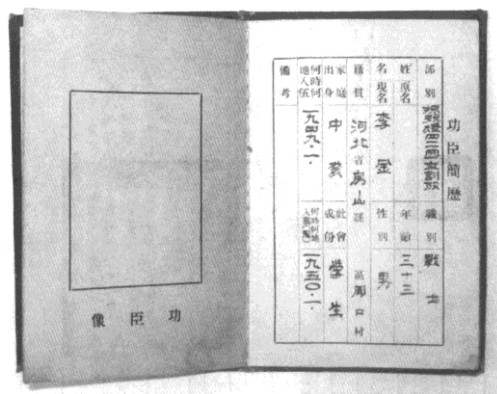 功臣簡歷
部別
職別 戰士
姓名 原名 現名 李金
年齡 三十三
性別 男
籍貫 河北省房山縣 區周口村
家庭出身 中農
社會成份 學生
何時何地入伍 一九四九·一·
何時何地入黨(團) 一九五〇·一·
備考
功臣像